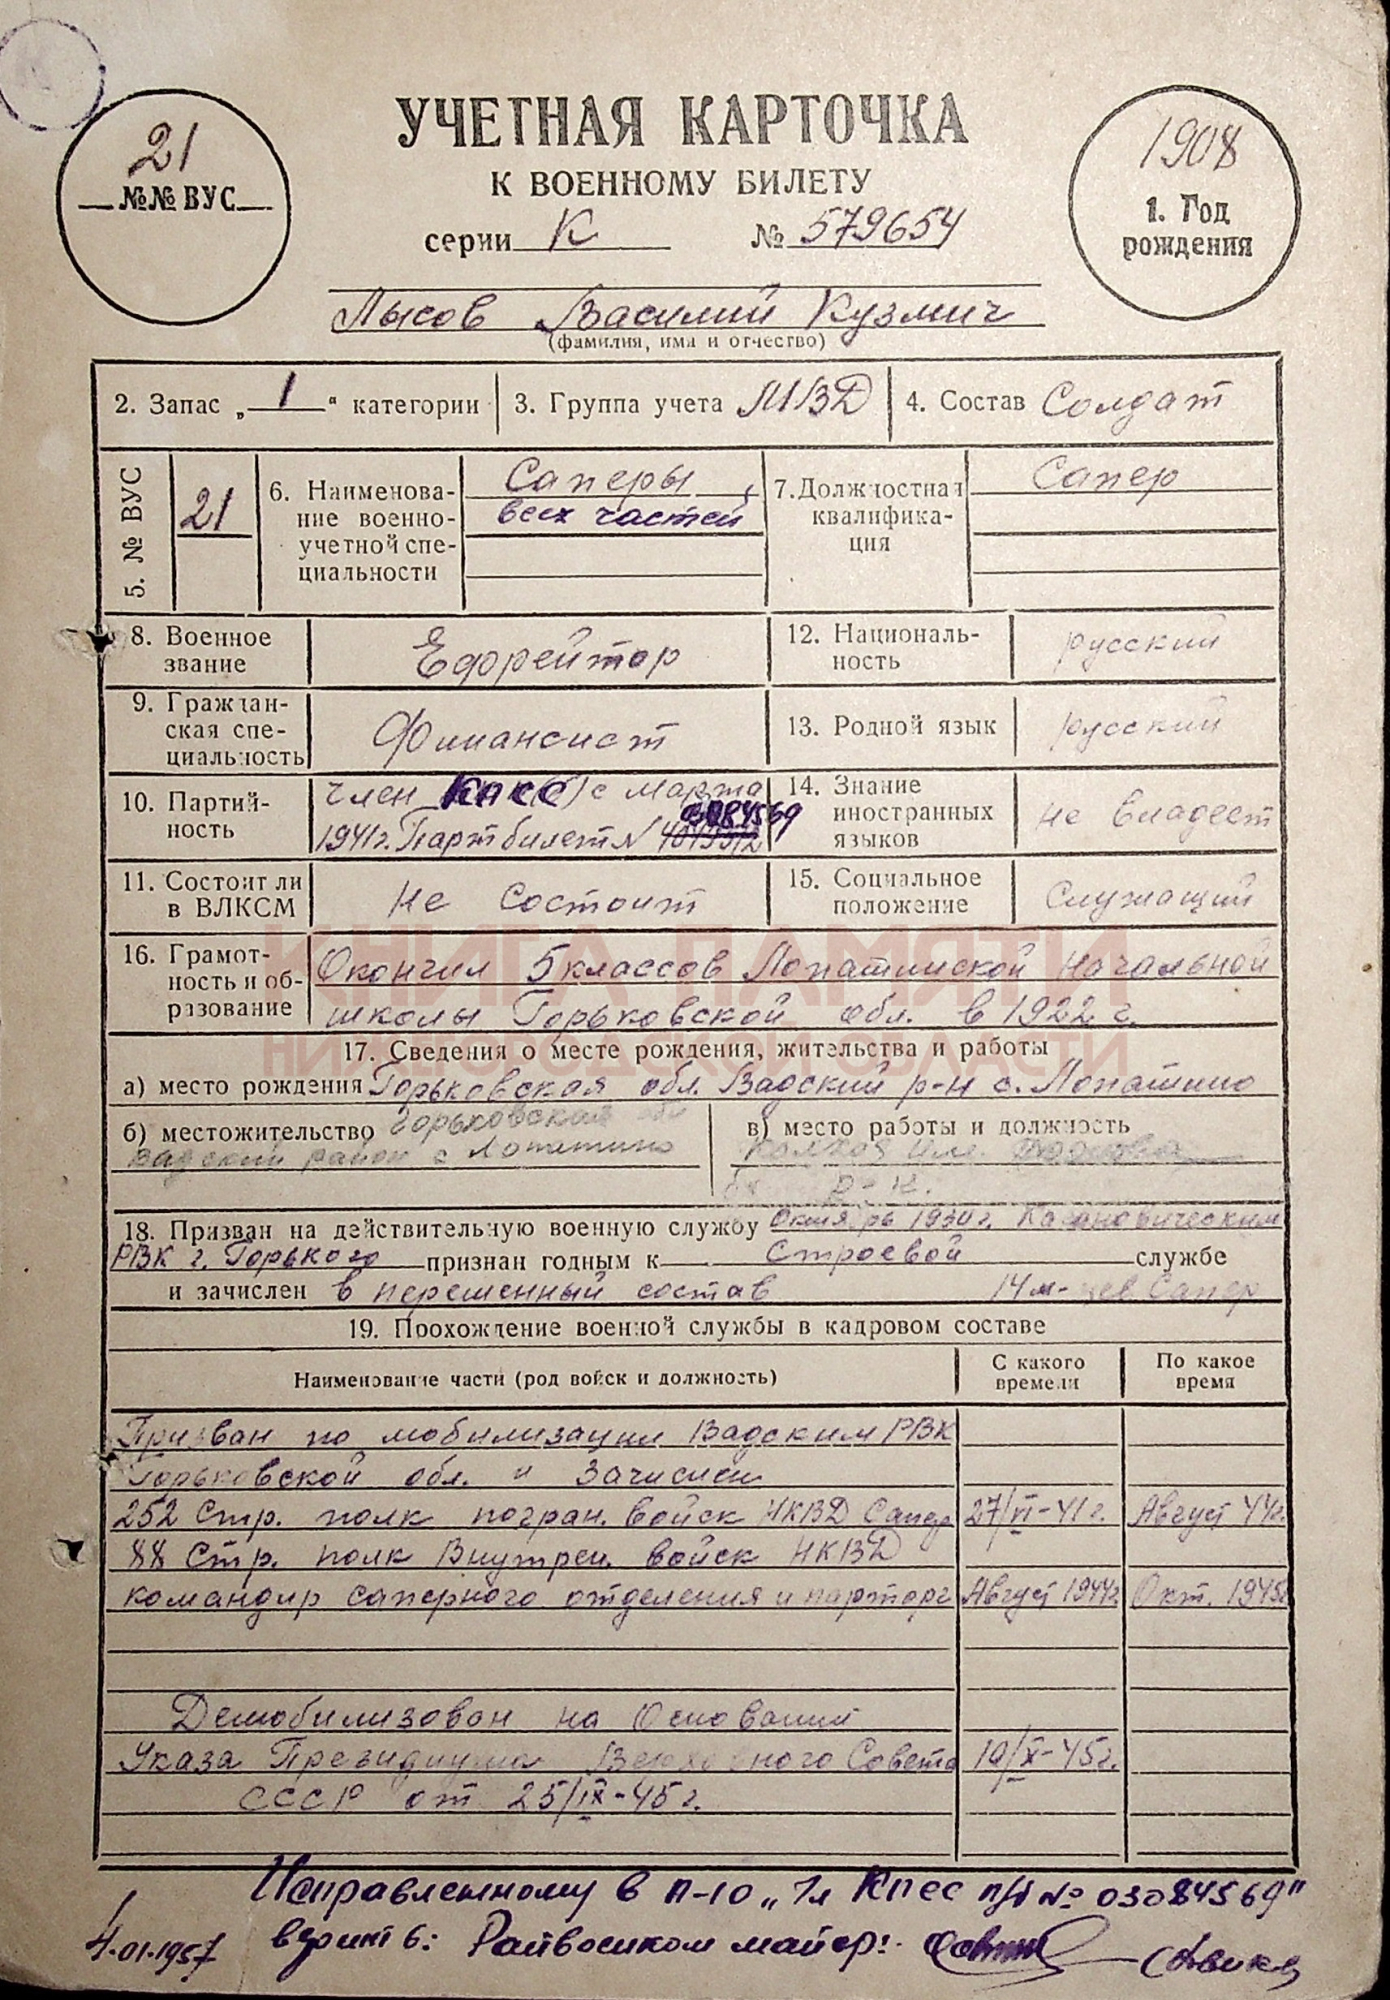 УЧЕТНАЯ КАРТОЧКА
К ВОЕННОМУ БИЛЕТУ
серии К № 579654
21
№№ ВУС
1908
1. Год
рождения
Лысов Василий Кузмич
(фамилия, имя и отчество)
2. Запас „1“ категории
3. Группа учета МВД
4. Состав Солдат
5. № ВУС
21
6. Наименова-
ние военно-
учетной спе-
циальности
Саперы
всех частей
7. Должностная
квалифика-
ция
Сапер
8. Военное
звание
Ефрейтор
12. Националь-
ность
русский
9. Граждан-
ская спе-
циальность
Финансист
13. Родной язык
русский
10. Партий-
ность
член КПСС с марта
1941г. Партбилет N 03084569
14. Знание
иностранных
языков
не владеет
11. Состоит ли
в ВЛКСМ
не состоит
15. Социальное
положение
Служащий
16. Грамот-
ность и об-
разование
Окончил 5 классов Лопатинской начальной
школы Горьковской обл. в 1922 г.
КНИГА ПАМЯТИ
НИЖЕГОРОДСКОЙ ОБЛАСТИ
17. Сведения о месте рождения, жительства и работы
а) место рождения Горьковская обл. Вадский р-н с. Лопатино
б) местожительство Горьковская обл
Вадский район с Лопатино
в) место работы и должность
колхоз им.
18. Призван на действительную военную службу Октябрь 1930г. Кагановическим
РВК г. Горького признан годным к Строевой службе
и зачислен в переменный состав 14 м-цев Сапер
19. Прохождение военной службы в кадровом составе
Наименование части (род войск и должность)
С какого
времени
По какое
время
Призван по мобилизации Вадским РВК
Горьковской обл. и Зачислен
252 Стр. полк погран. войск НКВД Сапер 27/VI-41г. Август 44г.
88 Стр. полк Внутрен. войск НКВД
командир саперного отделения и парторг Август 1944г Окт. 1945г
Демобилизован на Основании
Указа Президиума Верховного Совета 19/X-45г.
СССР от 25/IX-45г.
Исправленному в п-10 „Чл КПСС п/б № 03084569"
верить: Райвоенком майор:
4.01.1957